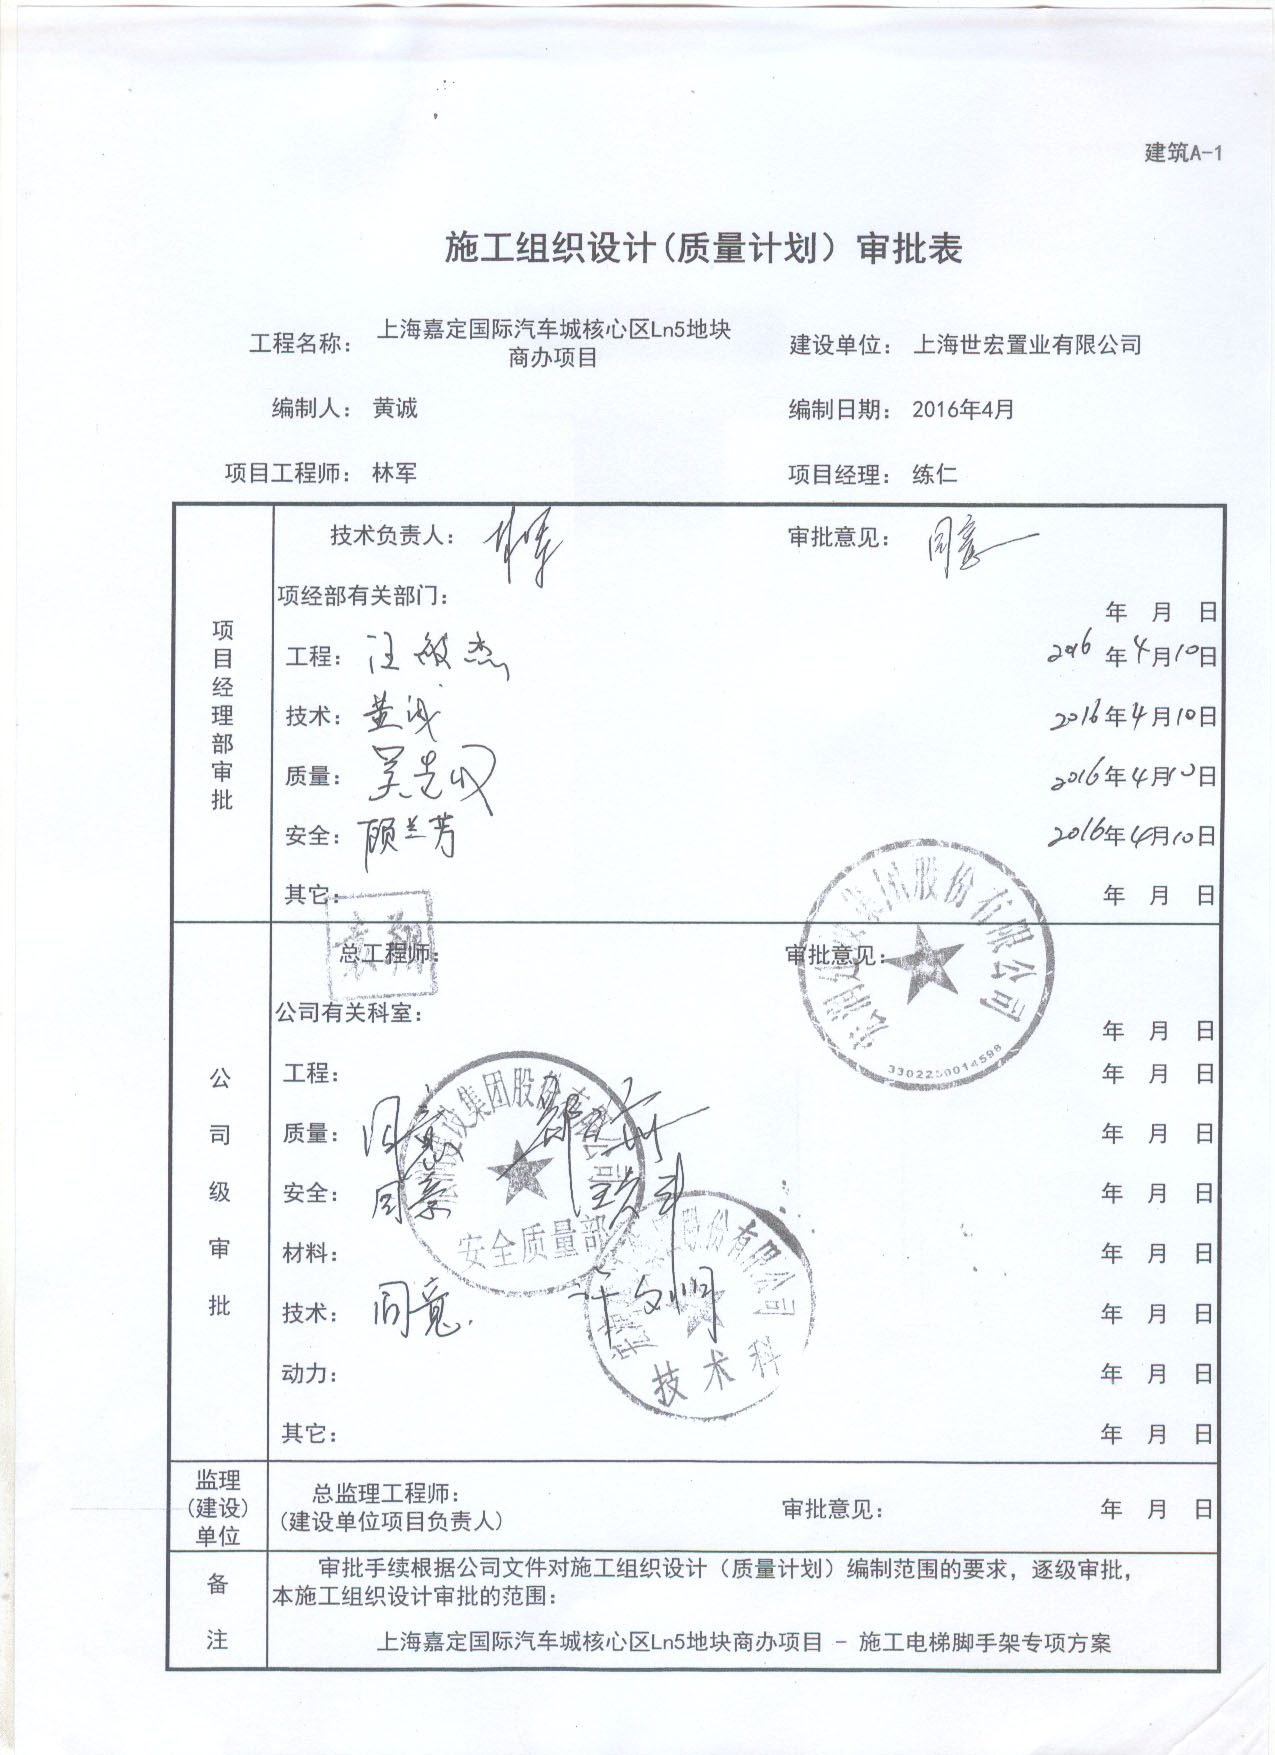 建筑A-1
施工组织设计(质量计划)审批表
工程名称: 上海嘉定国际汽车城核心区Ln5地块
商办项目
建设单位: 上海世宏置业有限公司
编制人: 黄诚
编制日期: 2016年4月
项目工程师: 林军
项目经理: 练仁
项目经理部审批
技术负责人: 林军
审批意见: 同意
项经部有关部门:
年 月 日
工程: 汪敏杰 2016年4月10日
技术: 黄诚 2016年4月10日
质量: 2016年4月10日
安全: 顾兰芳 2016年4月10日
其它: 年 月 日
公司级审批
总工程师:
审批意见:
集团股份有限公司
公司有关科室:
年 月 日
工程: 年 月 日
质量: 同意 年 月 日
安全: 同意 年 月 日
建设集团股份有限公司
安全质量部
材料: 年 月 日
技术: 同意. 年 月 日
股份有限公司
技术科
动力: 年 月 日
其它: 年 月 日
监理
(建设)
单位
总监理工程师:
(建设单位项目负责人)
审批意见: 年 月 日
备注
审批手续根据公司文件对施工组织设计(质量计划)编制范围的要求,逐级审批,
本施工组织设计审批的范围:
上海嘉定国际汽车城核心区Ln5地块商办项目 - 施工电梯脚手架专项方案